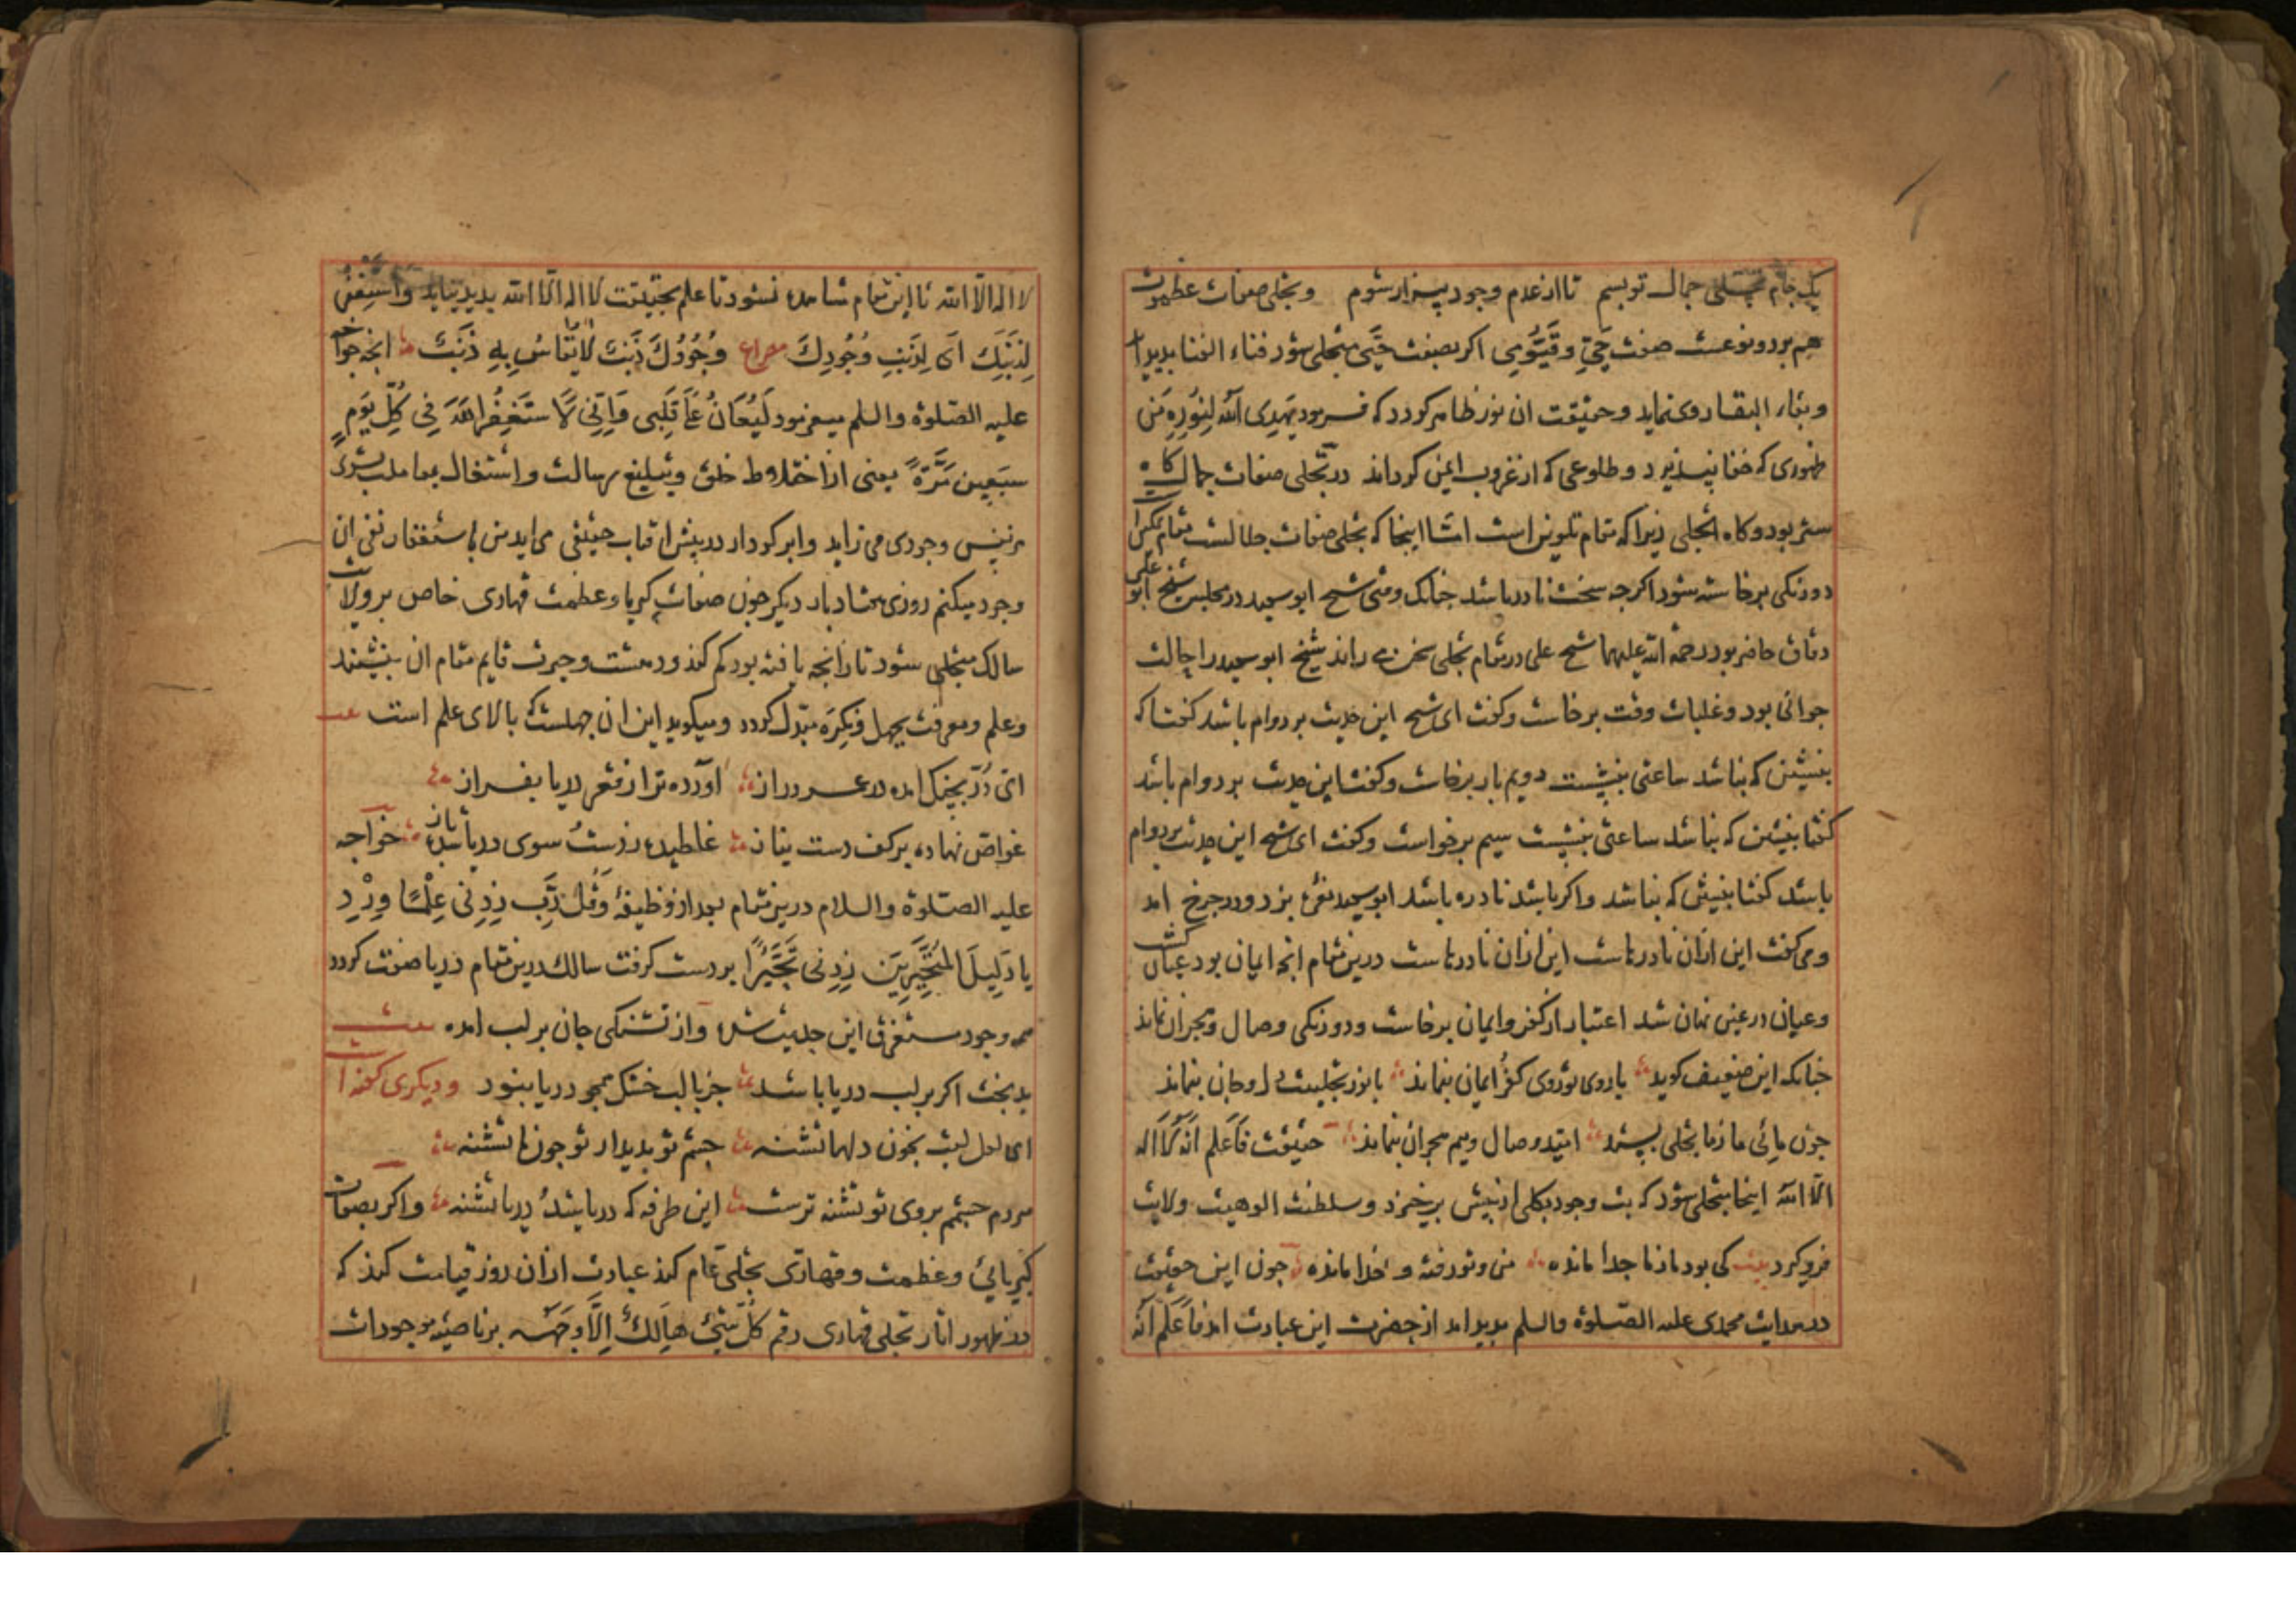 یک جام تجلی جمال تو بسم تا از عدم وجود بیزار شوم و تجلی صفات عظموت
هم بردو نوعست صفت حیّ و قیّومی اکر بصفت حیّی متجلی شود فناء الفنا بدید اید
و بقاء البقا روی نماید و حقیقت ان نور ظاهر کردد که فرمود یهدی الله لنوره من
ظهوری که خفا نپذیرد و طلوعی که از غروب ایمن کرداند در تجلی صفات جمال کاه
ستر بود و کاه تجلی زیرا که مقام تلوین است امّا اینجا که تجلی صفات جلالست مقام تمکین است
دورنکی برخاسته شود اکرجه سخت نادر باشد جنانک وقتی شیخ ابو سعید در مجلس شیخ ابو علی
دقاق حاضر بود رحمة الله علیهما شیخ علی در مقام تجلی سخن می راند شیخ ابو سعید را حالت
جوانی بود و غلبات وقت برخاست و کفت ای شیخ این حدیث بر دوام باشد کفتا که
بنشین که نباشد ساعتی بنشست دویم بار برخاست و کفت این حدیث بر دوام باشد
کفتا بنشین که نباشد ساعتی بنشست سیم برخواست و کفت ای شیخ این حدیث بر دوام
باشد کفتا بنشین که نباشد و اکر باشد نادره باشد ابو سعید نعرۀ بزد و در جرخ امد
و می کفت این ازان نادرهاست این ازان نادرهاست درین مقام انجه ایمان بود عیان کشت
و عیان در عین نهان شد اعتبار از کفر و ایمان برخاست و دورنکی وصال و هجران نماند
جنانکه این ضعیف کوید با روی تو روی کفر و ایمان بنماند با نور تجلیت دل و جان بنماند
جون مائی ما ز ما تجلی بستد امید وصال و بیم هجران بنماند حقیقت فاعلم انه لا اله
الا الله اینجا متجلی شود که بت وجود بکلی از پیش برخیزد و سلطنت الوهیت ولایت
فرو کیرد بیت کی بود ما ز ما جدا مانده من و تو رفته و خدا مانده جون این حقیقت
در بدایت محمدی علیه الصلوة والسلم بدید امد از حضرت این عبارت امد فاعلم انه
لا اله الا الله تا این مقام مشاهد نشود تا علم بحقیقت لا اله الا الله بدید نیاید و استغفر
لِذَنبِكَ ای لِذَنبِ وُجُودِكَ مصراع وُجُودُكَ ذَنبٌ لا یُقَاسُ بِهِ ذَنبٌ انجه خواجه
علیه الصلوة والسلم میفرمود لَیُغَانُ عَلَی قَلبِی وَاِنِّی لَاَستَغفِرُ اللهَ فِی کُلِّ یَومٍ
سَبعِینَ مَرَّةً یعنی از اختلاط خلق و تبلیغ رسالت و اشتغال بمعاملت بشری
هر نفس وجودی می زاید و ابر کردار در پیش افتاب حقیقی می اید من باستغفار نفی ان
وجود میکنم روزی هفتاد بار دیکر جون صفات کبریا و عظمت قهاری خاص بر ولایت
سالک متجلی شود تا رانجه یافته بود کم کند و دهشت و حیرت قایم مقام ان بنشیند
و علم و معرفت بجهل و نکره مبدّل کردد و میکوید این ان جهلست که بالای علم است
ای دُرّ بجنک امده در عمر دراز اورده ترا ز قعر دریا بفراز
غواص نهاده بر کف دست بناز غلطیده ز دست سوی دریا شده باز خواجه
علیه الصلوة والسلام درین مقام بعد از وظیفۀ وَقُل رَّبِّ زِدنِی عِلمًا وِردِ
یا دَلِیلَ المُتَحَیِّرِینَ زِدنِی تَحَیُّرًا بر دست کرفت سالک درین مقام دریا صفت کردد
همه وجود مستغرق این حدیث شده و از تشنکی جان بر لب امده بیت
بدبخت اکر بر لب دریا باشد جز با لب خشک همجو دریا نبود و دیکری کفته است
ای لعل لبت بخون دلها تشنه جشم تو بدیدار تو جون ما تشنه
مردم جشمم بروی تو تشنه ترست این طرفه که دریا شد و دریا تشنه و اکر بصفات
کبریائی و عظمت و قهاری تجلی عام کند عبارت ازان روز قیامت کند که
در ظهور اثار تجلی قهاری رقم کُلُّ شَیئٍ هَالِكٌ اِلَّا وَجهَهُ بر ناصیه موجودات